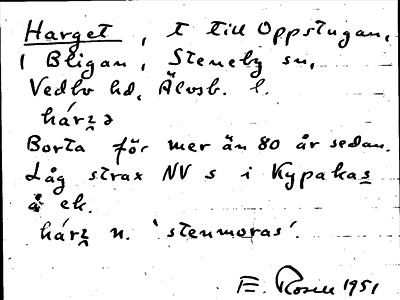 Harget, t till Oppstugan,
1 Bligan, Steneby sn,
Vedbo hd, Älvsb. l.
hárʒ̯ə
Borta för mer än 80 år sedan.
Låg strax NV s i Kypakas
å ek.
hárʒ̯ n. 'stenmoras'.
E. Rosen 1951